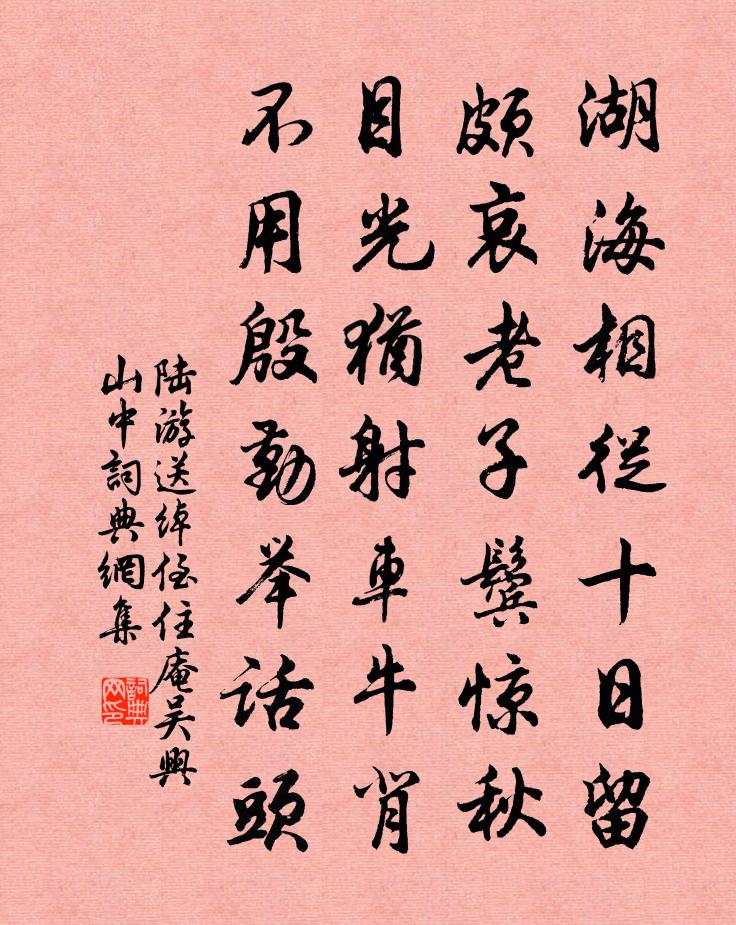 湖海相從十日留
頗哀老子鬢惊秋
目光猶射車牛背
不用殷勤举话頭
陆游送绰侄住庵吴興
山中詞典網集
詞典
网印